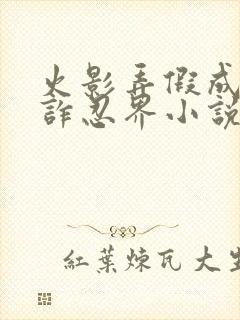 火影弄假成
詐忍界小說
紅葉煉瓦大